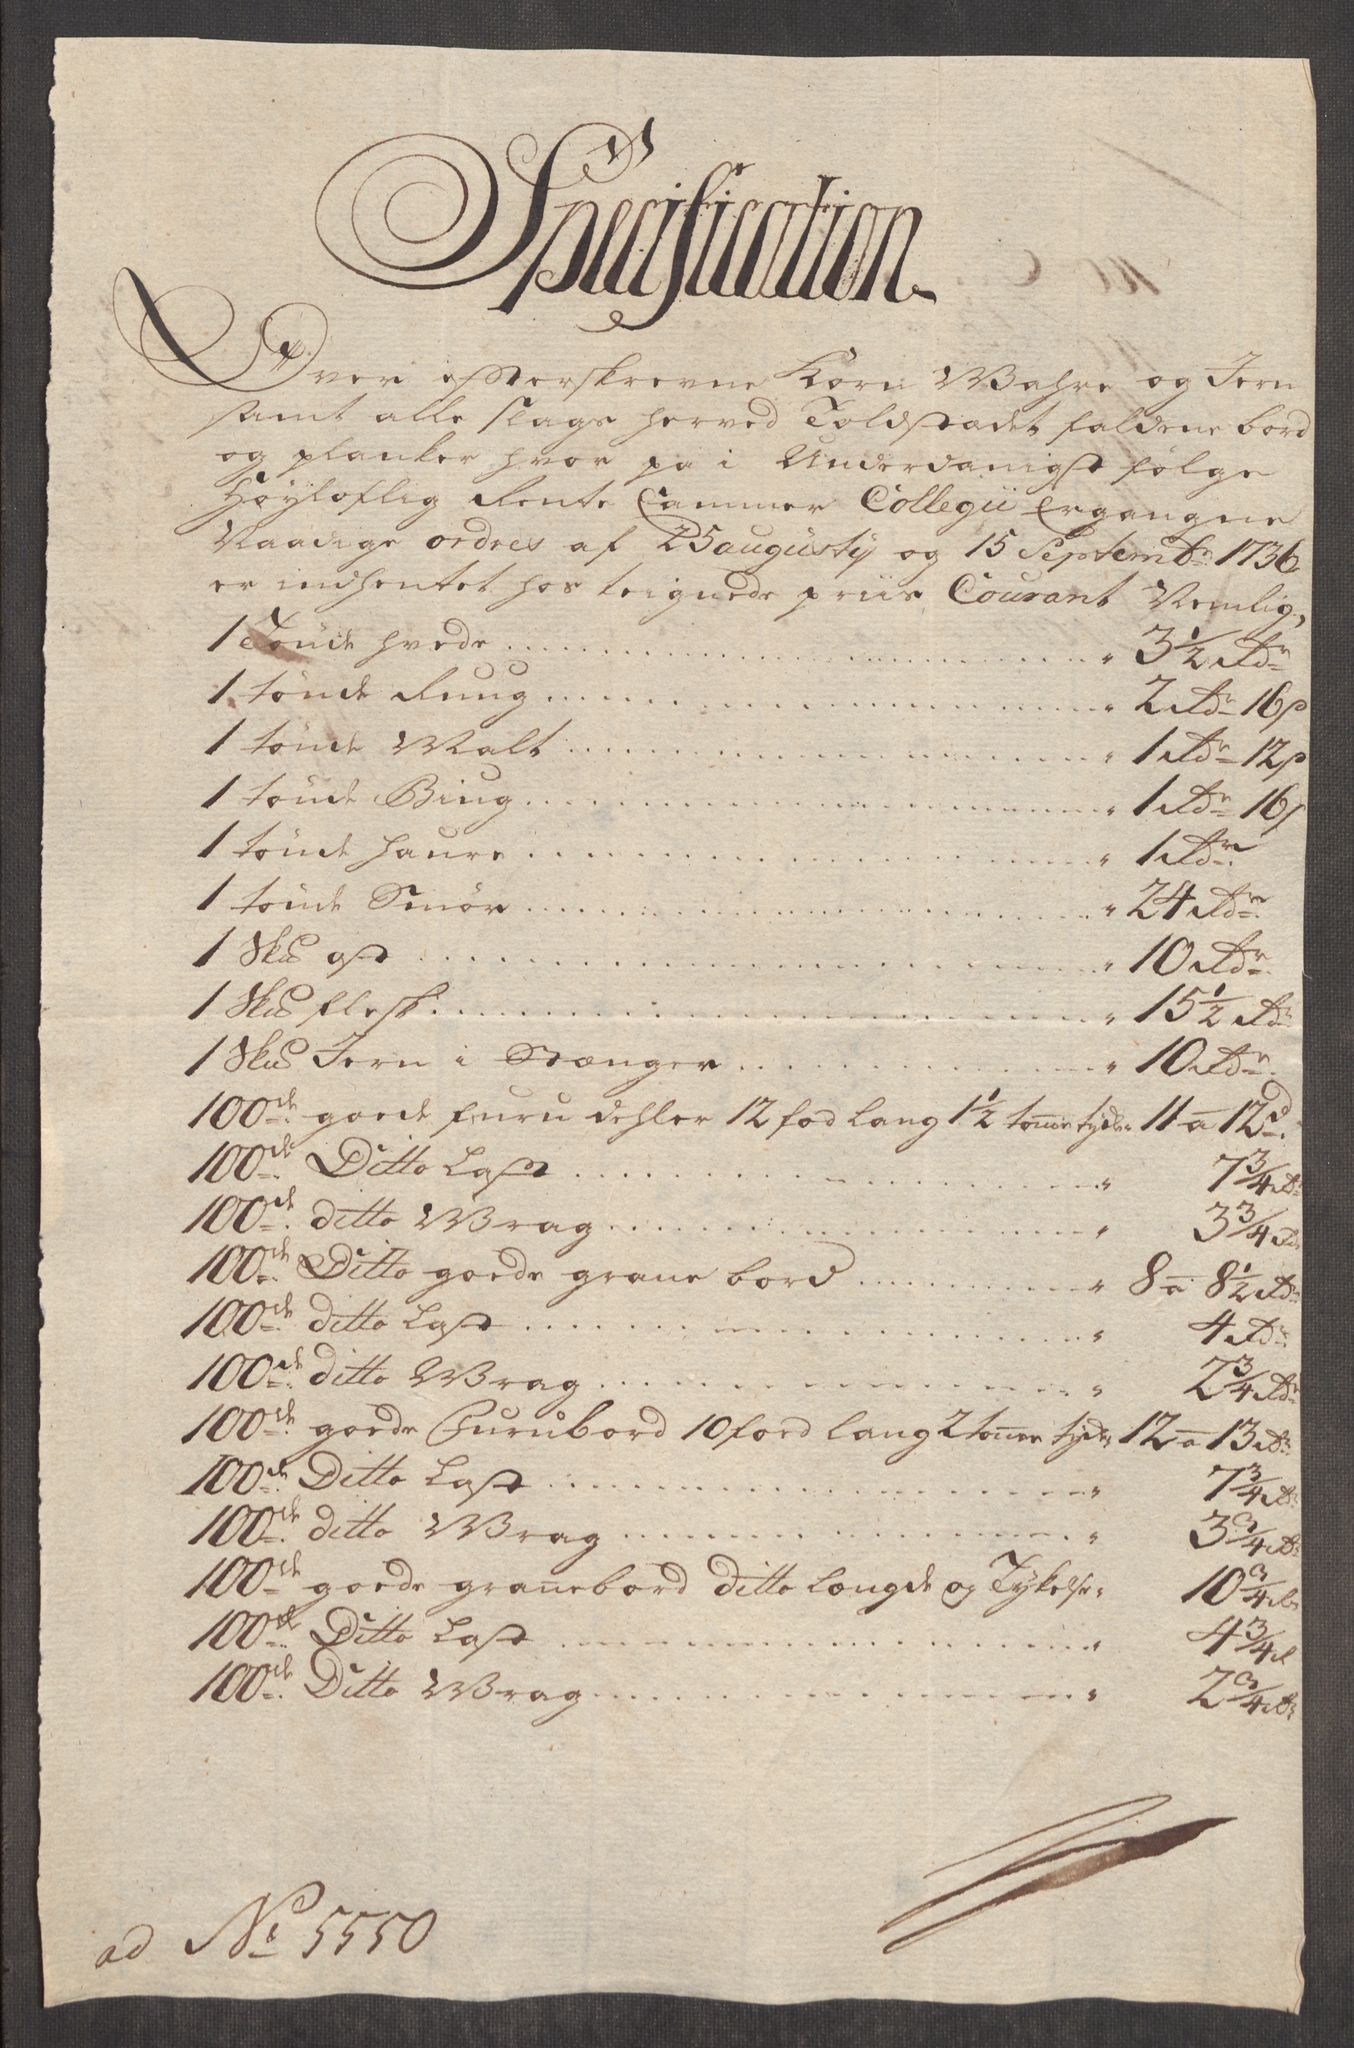 Specification
Over efterskrevne Korn Wahre og Jern
samt alle slags herved Toldstædet faldene bord
og planker hvor pa i Underdanigst følge
Høyloflig Rente Cammer Collegii Ergangne
Naadige ordres af 25 augusty og 15 Septembr 1736
er indhentet hos teignede priis Courant Nemlig,
1 Tönde hvede " 3½ Rdr
1 tönde Ruug " 2 Rdr 16 s
1 tönde Malt " 1 Rdr 12 s
1 tönde Biug " 1 Rdr 16 s
1 tönde haure " 1 Rdr
1 tönde Smör " 24 Rdr
1 Sku ost " 10 Rdr
1 Sku flesk " 15½ Rdr
1 Sku Jern i Stænger " 10 Rdr
100de goede furu dehler 12 fod lang 1½ tomme tyck " 11 a 12 d
100de Ditto Last " 7¾ Rdr
100de ditto Wrag " 3¾ Rdr
100de Ditto goede grane bord " 8 a 8½ Rdr
100de ditto Last " 4 Rdr
100de ditto Wrag " 2¾ Rdr
100de goede Furubord 10 foed lang 2 tomme tyck " 12 a 13 Rdr
100de Ditto Last " 7¾ Rdr
100de ditto Wrag " 3¾ Rdr
100de goede granebord ditto Længde og Tykelse " 10¾ Rdr
100de Ditto Last " 4¾ R
100de Ditto Wrag " 2¾ Rdr
ad No 5550